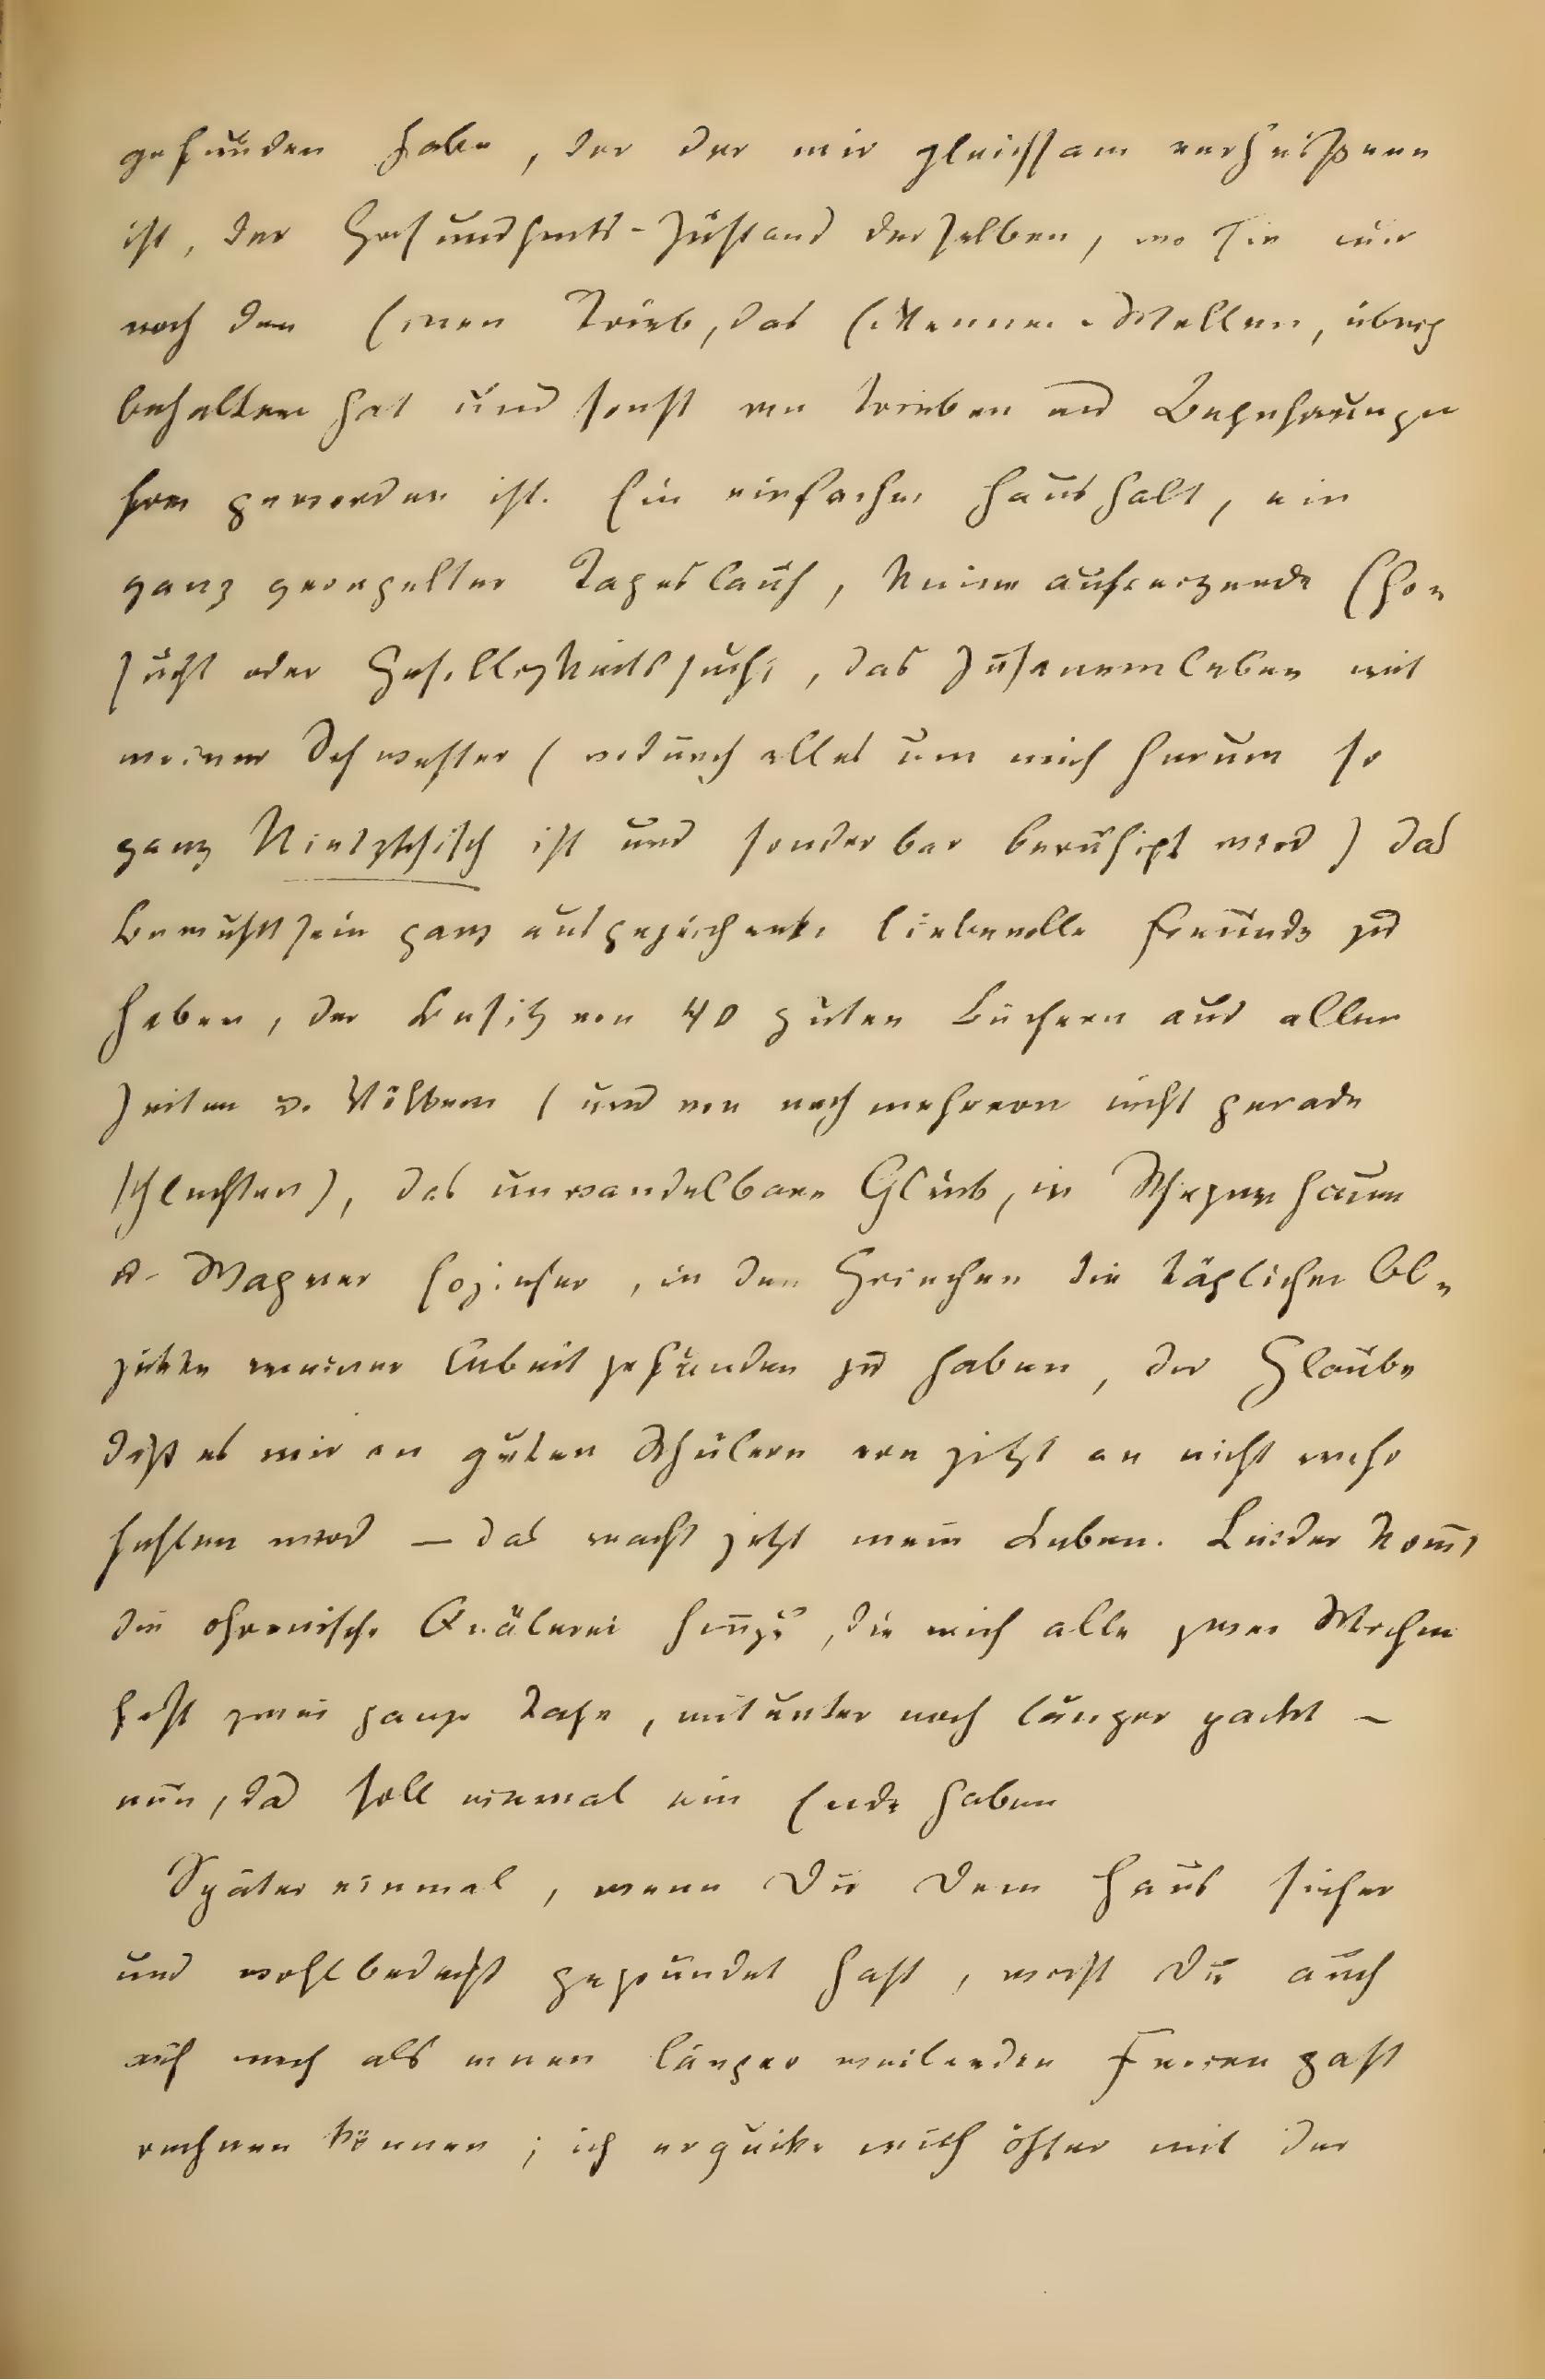 gefunden habe, der der mir gleichsam verheißene
ist, der Gesundheits-Zustand derselben, wo sie nur
noch den Einen Trieb, das Erkennen-Wollen, übrig
behalten hat und sonst von Trieben und Begehrungen
frei geworden ist. Ein einfacher Haushalt, ein
ganz geregelter Tageslauf, keine aufreizende Ehr-
sucht oder Geselligkeitssucht, das Zusammenleben mit
meiner Schwester (wodurch alles um mich herum so
ganz Nietzschisch ist und sonderbar beruhigt wird) das
Bewußtsein ganz ausgezeichnete liebevolle Freunde zu
haben, der Besitz von 40 guten Büchern aus allen
Zeiten u. Völkern (und von noch mehreren nicht gerade
schlechten), das unwandelbare Glück, in Schopenhauer
u. Wagner Erzieher, in den Griechen die täglichen Ob-
jekte meiner Arbeit gefunden zu haben, der Glaube
daß es mir an guten Schülern von jetzt an nicht mehr
fehlen wird — das macht jetzt mein Leben. Leider kom̄t
die chronische Quälerei hinzu, die mich alle zwei Wochen
fast zwei ganze Tage, mitunter noch länger packt —
nun, das soll einmal ein Ende haben
Später einmal, wenn Du Dein Haus sicher
und wohlbedacht gegründet hast, wirst Du auch
auf mich als einen länger weilenden Feriengast
rechnen können; ich erquicke mich öfter mit der